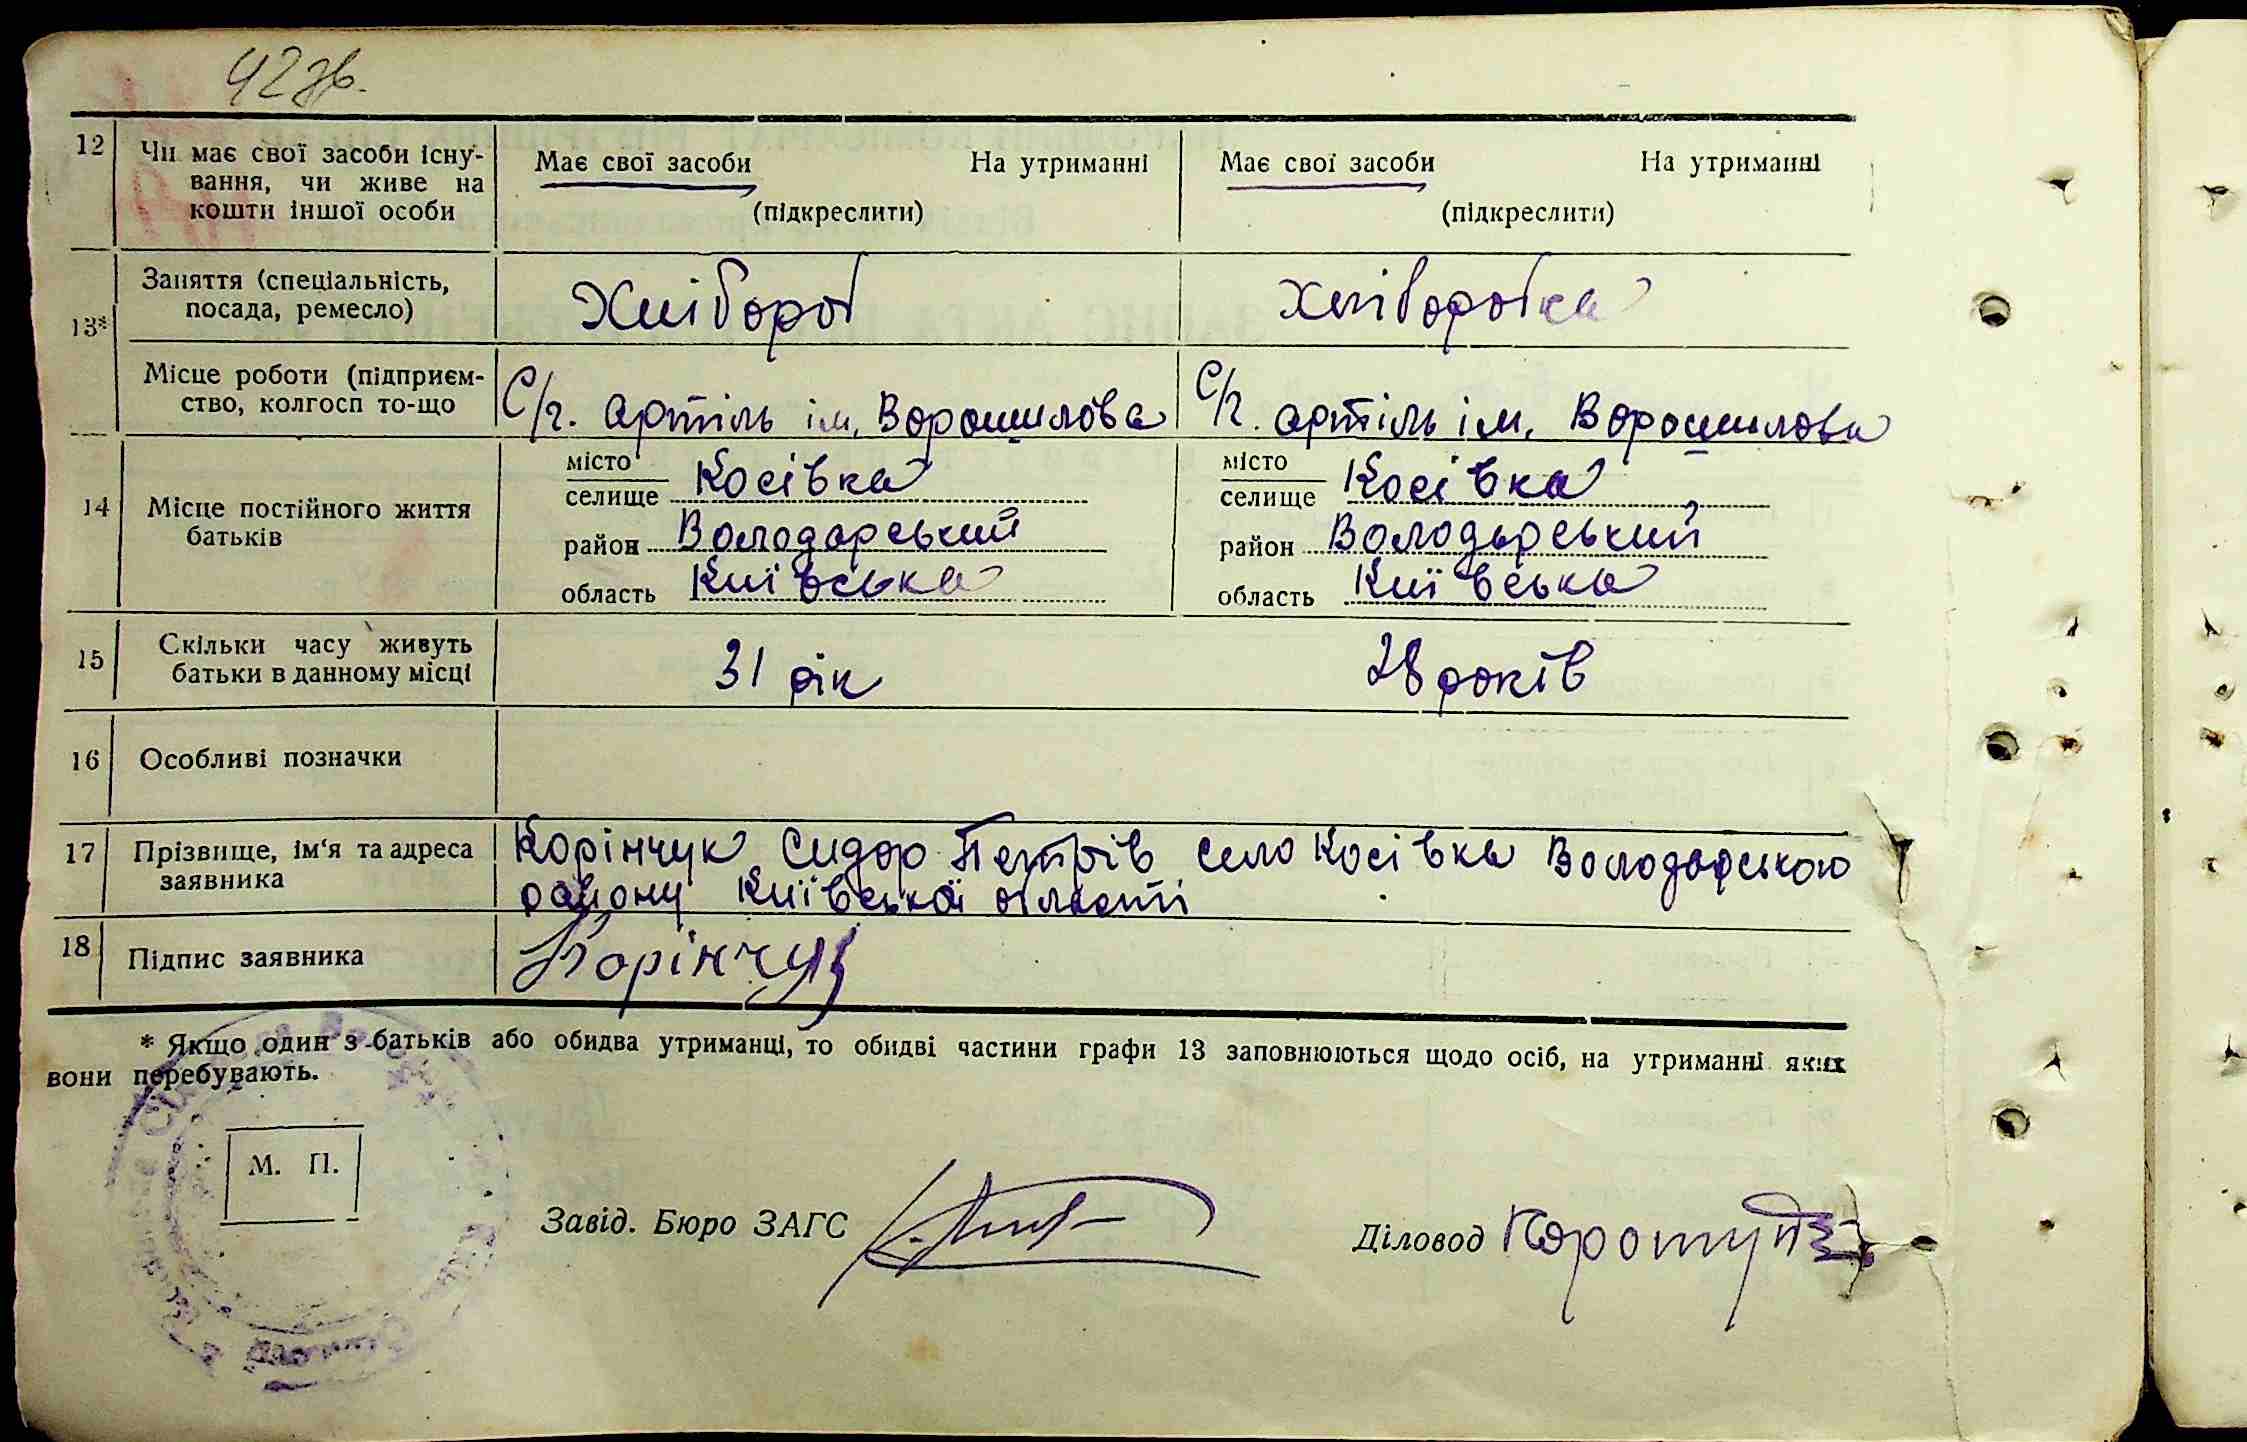 42зв.
12 Чи має свої засоби існу- Має свої засоби На утриманні Має свої засоби На утриманні
вання, чи живе на
кошти іншої особи (підкреслити) (підкреслити)
13* Заняття (спеціальність, Хлібороб Хліборобка
посада, ремесло)
Місце роботи (підприєм- С/г. артіль ім. Ворошилова С/г. артіль ім. Ворошилова
ство, колгосп то-що
14 Місце постійного життя місто Косівка місто Косівка
батьків селище селище
район Володарський район Володарський
область Київська область Київська
15 Скільки часу живуть 31 рік 28 років
батьки в данному місці
16 Особливі позначки
17 Прізвище, ім'я та адреса Корінчук Сидор Петрів село Косівка Володарського
заявника району Київської області
18 Підпис заявника Корінчук
* Якщо один з батьків або обидва утриманці, то обидві частини графи 13 заповнюються щодо осіб, на утриманні яких
вони перебувають.
М. П.
Завід. Бюро ЗАГС Діловод